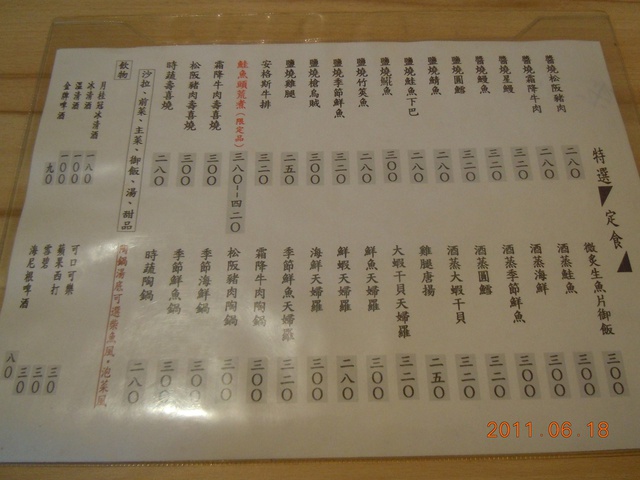 特選
定食
醬燒松阪豬肉 二八〇
醬燒霜降牛肉 二八〇
醬燒星鰻 三二〇
醬燒鰻魚 三二〇
鹽燒圓鱈 三二〇
鹽燒鯖魚 二八〇
鹽燒鮭魚下巴 二八〇
三〇〇
鹽燒竹莢魚 二八〇
鹽燒季節鮮魚 三二〇
鹽燒槍烏賊 三〇〇
鹽燒雞腿 二五〇
安格斯牛排 三二〇
鮭魚頭荒煮(限定品) 三八〇－四二〇
霜降牛肉壽喜燒 三〇〇
松阪豬肉壽喜燒 三〇〇
時蔬壽喜燒 二八〇
微炙生魚片御飯 三〇〇
酒蒸鮭魚 三〇〇
酒蒸海鮮 三〇〇
酒蒸季節鮮魚 三〇〇
酒蒸圓鱈 三二〇
酒蒸大蝦干貝 三二〇
雞腿唐揚 二五〇
大蝦干貝天婦羅 三二〇
鮮魚天婦羅 三〇〇
鮮蝦天婦羅 二八〇
海鮮天婦羅 三〇〇
季節鮮魚天婦羅 三二〇
霜降牛肉陶鍋 三〇〇
松阪豬肉陶鍋 三〇〇
季節海鮮鍋 三〇〇
季節鮮魚鍋 三〇〇
時蔬陶鍋 二八〇
沙拉、前菜、主菜、御飯、湯、甜品
陶鍋湯底可選柴魚風、泡菜風
飲物
月桂冠冰清酒 一八〇
冰清酒 一〇〇
溫清酒 一〇〇
金牌啤酒 九〇
可口可樂 三〇
蘋果西打 三〇
雪碧 三〇
海尼根啤酒 八〇
2011.06.18